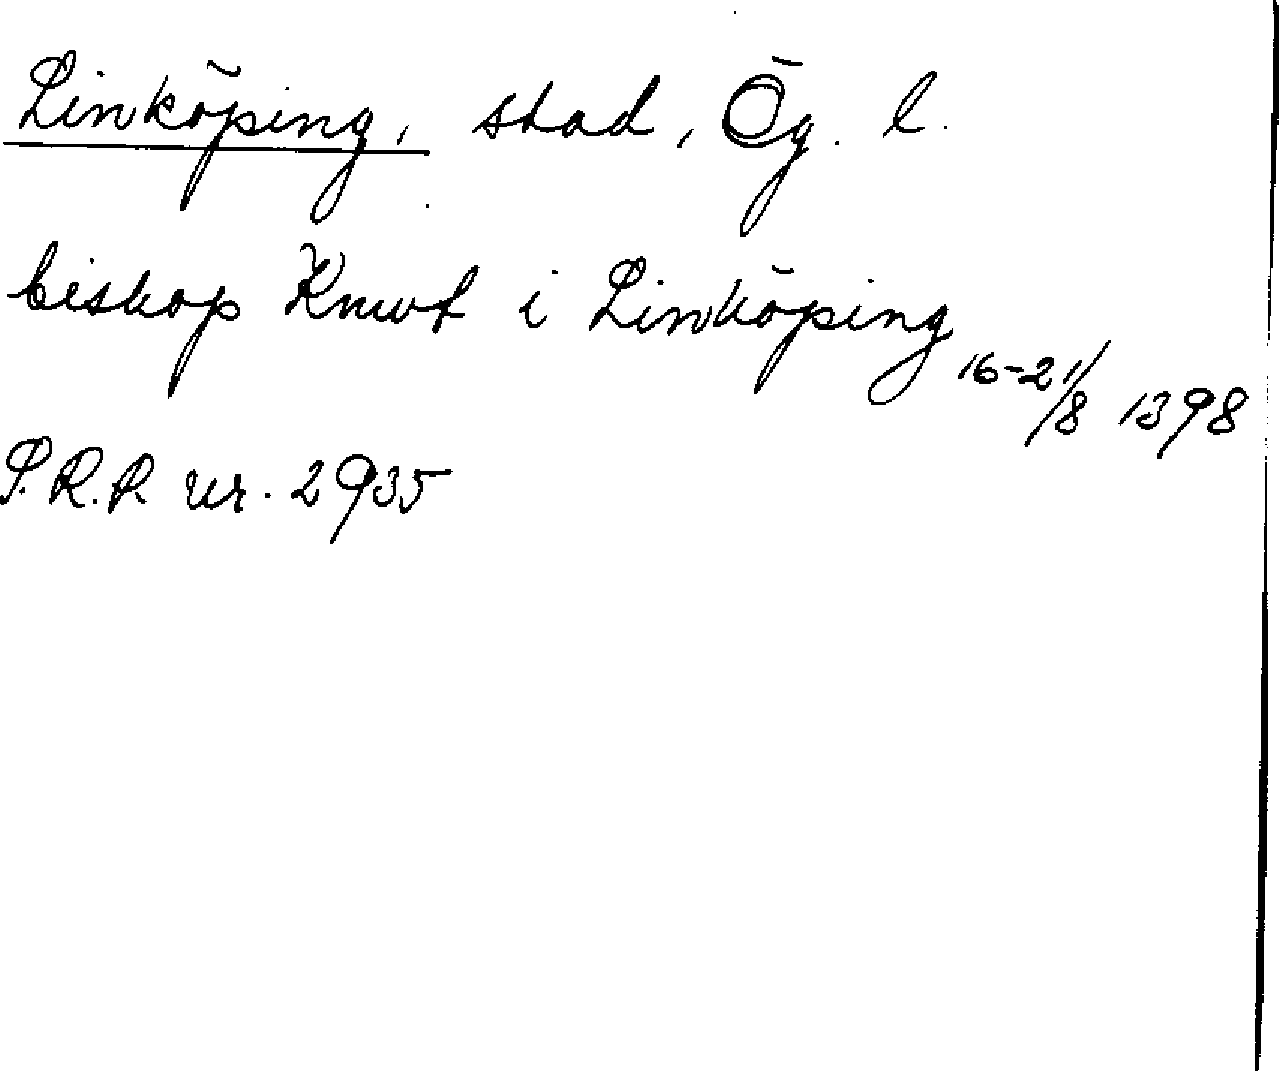 Linköping, stad, Ög. l.
biskop Knut i Linköping 16-21/8 1398
P.R.P. nr. 2935